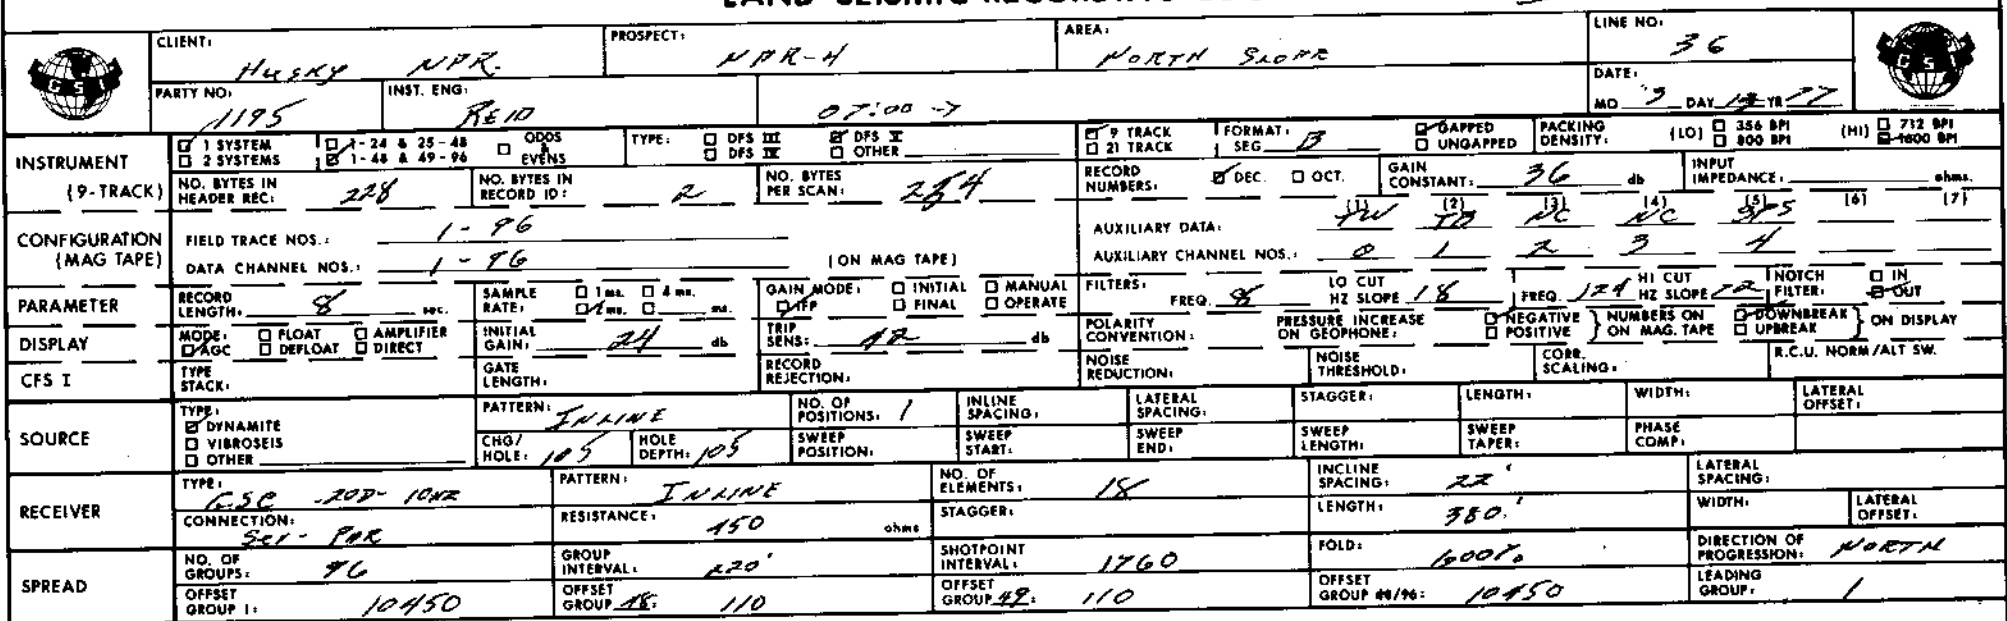 CLIENT: Husky NPR. PROSPECT: NPR-4 AREA: NORTH SLOPE LINE NO: 36
GSI GSI
PARTY NO: 1195 INST. ENG: REID 07:00 -> DATE: MO 3 DAY YR 77
INSTRUMENT (9-TRACK) 1 SYSTEM 1-24 & 25-48 ODDS & EVENS TYPE: DFS III DFS V 9 TRACK FORMAT: SEG B GAPPED PACKING DENSITY: (LO) 356 BPI (HI) 712 BPI
2 SYSTEMS 1-48 & 49-96 DFS IV OTHER 21 TRACK UNGAPPED 800 BPI 1600 BPI
NO. BYTES IN HEADER REC: 228 NO. BYTES IN RECORD ID: 2 NO. BYTES PER SCAN: 254 RECORD NUMBERS: DEC. OCT. GAIN CONSTANT: 36 db INPUT IMPEDANCE: ohms.
CONFIGURATION (MAG TAPE) FIELD TRACE NOS.: 1 - 96 AUXILIARY DATA: (1) TW (2) TB (3) NC (4) NC (5) SPS (6) (7)
DATA CHANNEL NOS.: 1 - 96 (ON MAG TAPE) AUXILIARY CHANNEL NOS.: 0 1 2 3 4
PARAMETER RECORD LENGTH: 8 sec. SAMPLE RATE: 1 ms. 4 ms. 2 ms. ms. GAIN MODE: INITIAL MANUAL IFP FINAL OPERATE FILTERS: FREQ. 8 LO CUT HZ SLOPE 18 FREQ. 124 HI CUT HZ SLOPE 72 NOTCH FILTER: IN OUT
DISPLAY MODE: FLOAT AMPLIFIER AGC DEFLOAT DIRECT INITIAL GAIN: 24 db TRIP SENS: 42 db POLARITY CONVENTION: PRESSURE INCREASE ON GEOPHONE: NEGATIVE POSITIVE } NUMBERS ON ON MAG. TAPE DOWNBREAK UPBREAK } ON DISPLAY
CFS I TYPE STACK: GATE LENGTH: RECORD REJECTION: NOISE REDUCTION: NOISE THRESHOLD: CORR. SCALING: R.C.U. NORM/ALT SW.
SOURCE TYPE: DYNAMITE VIBROSEIS OTHER PATTERN: INLINE NO. OF POSITIONS: 1 INLINE SPACING: LATERAL SPACING: STAGGER: LENGTH: WIDTH: LATERAL OFFSET:
CHG/HOLE: 105 HOLE DEPTH: 105 SWEEP POSITION: SWEEP START: SWEEP END: SWEEP LENGTH: SWEEP TAPER: PHASE COMP:
RECEIVER TYPE: GSC 20D- 10HZ PATTERN: INLINE NO. OF ELEMENTS: 18 INCLINE SPACING: 22' LATERAL SPACING:
CONNECTION: Ser - PAR RESISTANCE: 450 ohms STAGGER: LENGTH: 380.' WIDTH: LATERAL OFFSET:
SPREAD NO. OF GROUPS: 96 GROUP INTERVAL: 220' SHOTPOINT INTERVAL: 1760 FOLD: 600% DIRECTION OF PROGRESSION: NORTH
OFFSET GROUP 1: 10450 OFFSET GROUP 48: 110 OFFSET GROUP 49: 110 OFFSET GROUP 48/96: 10450 LEADING GROUP: 1